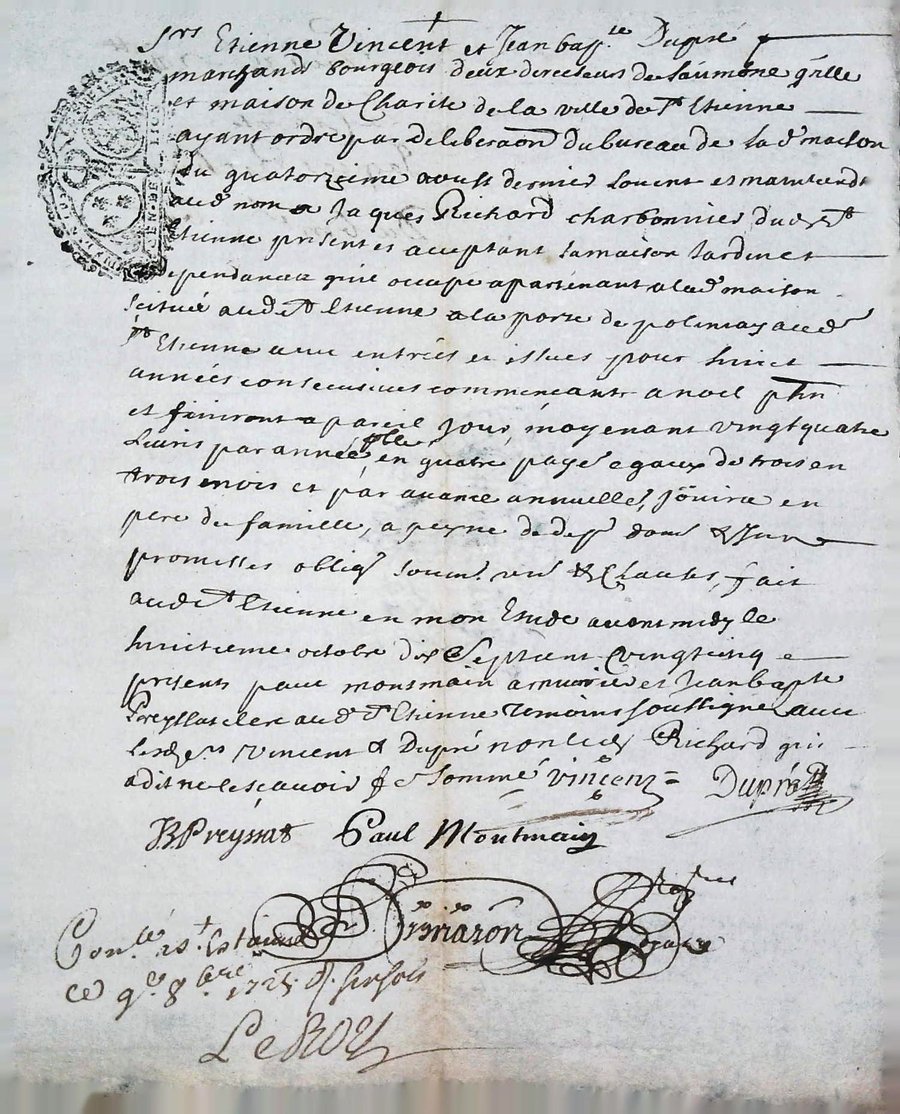 Srs Etienne Vincent et Jean bapte Dupré
marchands bourgeois deux directeurs de laumône g̃nlle
et maison de Charité de la ville de St Etienne
ayant ordre par deliberaõn du bureau de lad maison
du quatorzieme aoust dernier louent et maintiend
aud nom a Jaques Richard charbonnier dud St
Etienne present et acceptant la maison Jardin et
dependances quil occupe apartenant a lad maison
scituée aud St Etienne a la porte de polignay aud
St Etienne avec entrées et issues pour huict
années consecutives commenceants a noel pñ
et finiront a pareil Jour, moyenant vingt quatre
Livres par année, en quatre payes egaux de trois en
trois mois et par avance annuelle, Jouira en
pere de famille, a peyne de dep dom &
promesses oblig soum ren & Clauses, fait
aud St Etienne en mon Etude avant midy le
huictieme octobre dix Sept cent vingt cinq
presents paul montmain armurier et Jean bapte
Preyssat clerc aud St Etienne temoins soussignes avec
lesd srs Vincent & Dupré non led Richard qui
a dit ne le scavoir de ce sommé Vincent Dupré
JB Preyssat Paul Montmain
Conlé a St Estienne
ce 9e 8bre 1725
Le ROY